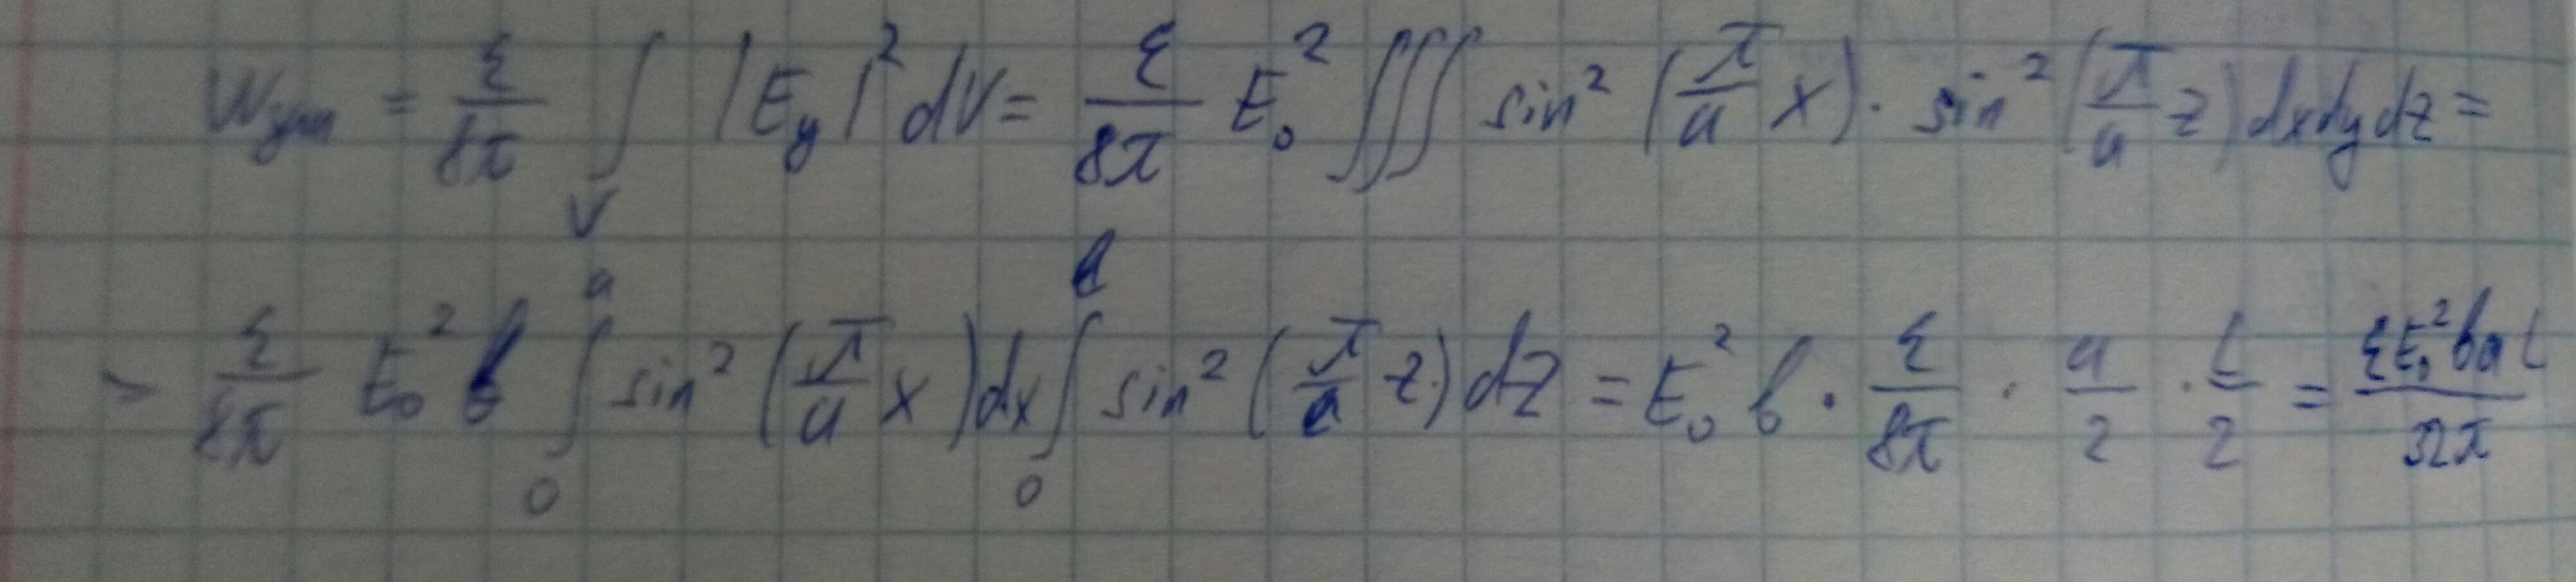 W = ε/8π ∫_V |E_y|² dV = ε/8π E₀² ∭ sin² (π/a x) · sin² (π/a z) dx dy dz =
= ε/8π E₀² b ∫₀^a sin² (π/a x) dx ∫₀^l sin² (π/a z) dz = E₀² b · ε/8π · a/2 · L/2 = εE₀² b a L/32π